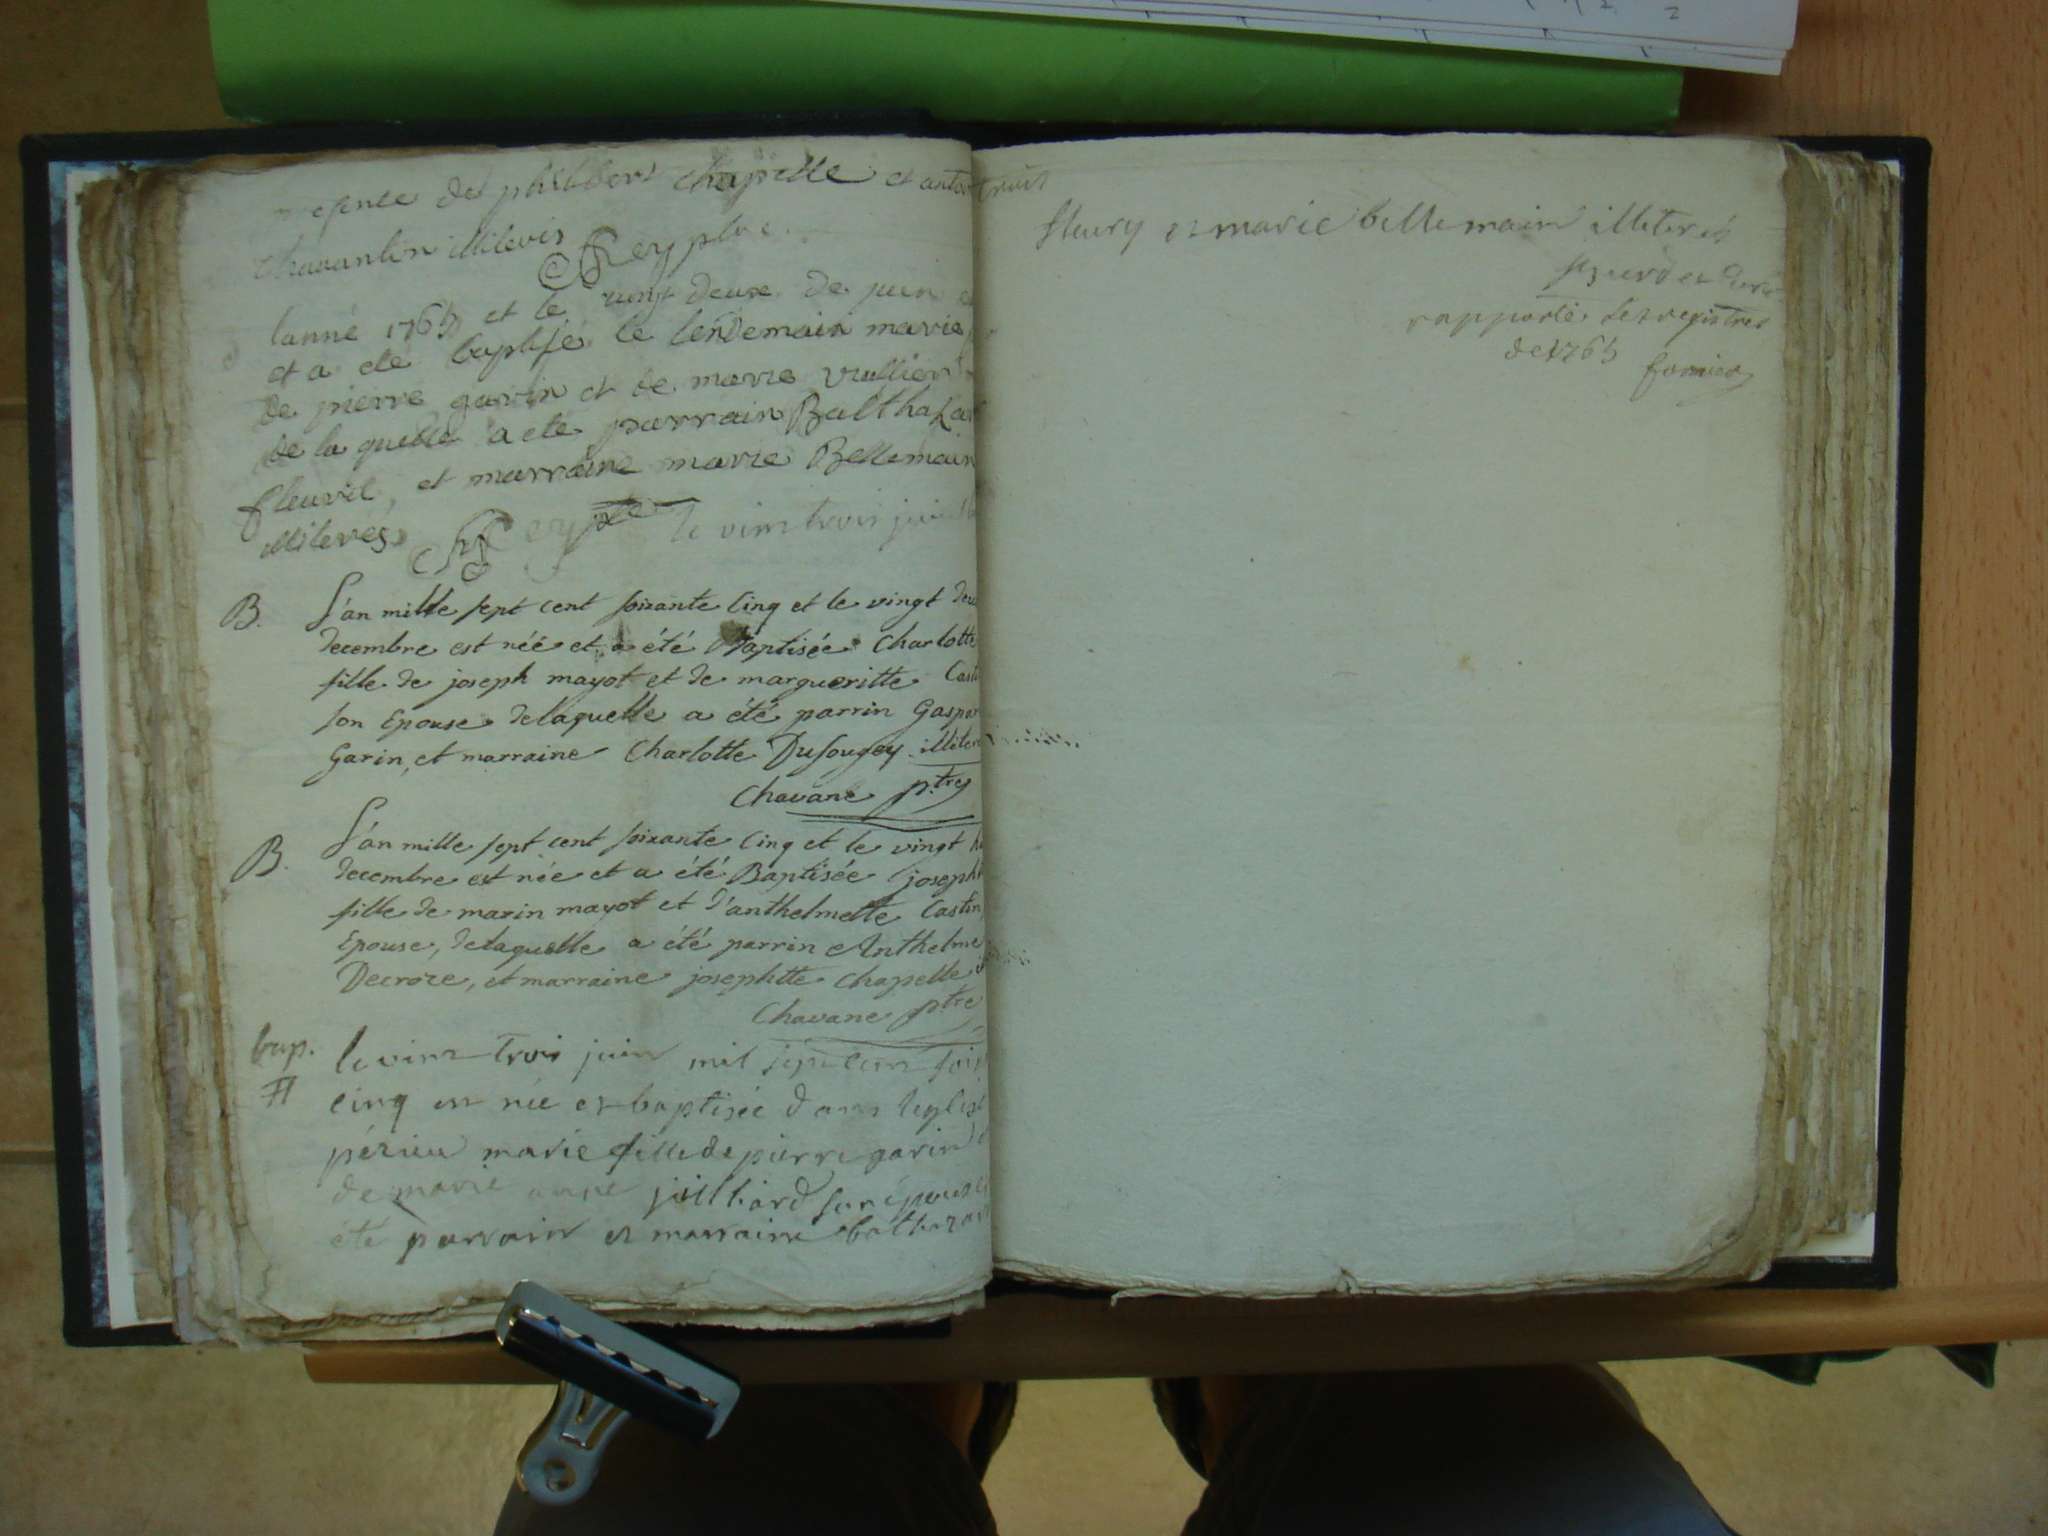 de philibert chapelle et
illileres Reyptre.
lanné 1765 et le vingt deux de juin
et a eté baptisé le lendemain marie
de pierre garin et de marie vuillier
de la quelle a ete parrain Balthazar
fleuril, et marraine marie Bellemain
illileres Reyptre le vint trois juin
B. L'an mille sept cent soixante cinq et le vingt
decembre est néé et a été Baptisée Charlotte
fille de joseph mayot et de margueritte
son Epouse delaquelle a été parrin Gaspar
Garin, et marraine Charlotte Dusougey illiter
Chavane ptre
B. L'an mille sept cent soixante cinq et le vingt
decembre est née et a été Baptisée joseph
fille de marin mayot et d'anthelmette Castin
Epouse, delaquelle a été parrin Anthelme
Decroze, et marraine josephtte Chapelle
Chavane ptre
bap. le vint trois juin mil sept cent soix
cinq est née et baptisée dans leglise
périeu marie fille de pierre garin
de marie anne juilliard son épouse
été parrain et marraine balthazar
fleury et marie bellemain illiterés
rapporté les registres
de 1765